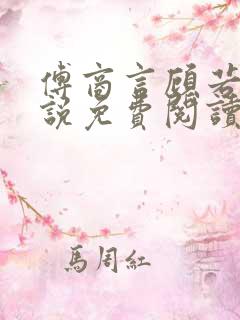 傅商言顧若
說免費閱讀
馬周紅